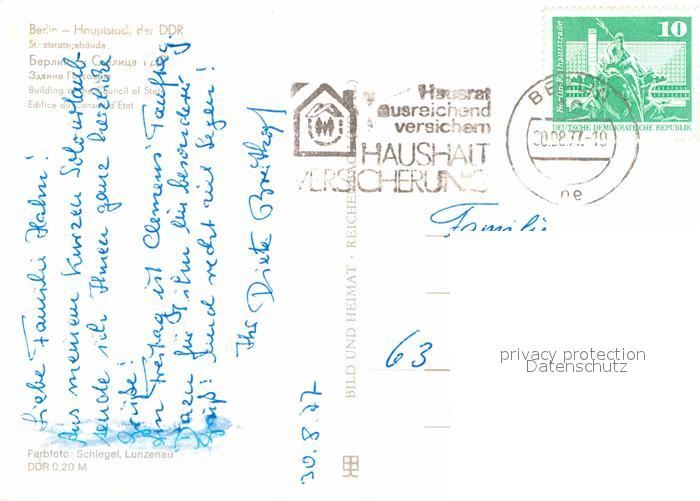 Berlin – Hauptstadt der DDR
Staatsratsgebäude
Building of the Council of State
Edifice du Conseil d'Etat
Liebe Familie Hahn!
Aus meinem kurzen Solourlaub
sende ich Ihnen ganz herzliche
Grüße!
Am Freitag ist Clemens' Tauftag.
Dazu für ihn ein besonderer
Gruß! Und recht viel Segen!
Ihr Dieter
30.8.77
Farbfoto: Schlegel, Lunzenau
DDR 0,20 M
BILD UND HEIMAT · REICHEN
Hausrat
ausreichend
versichern
HAUSHALT
VERSICHERUNG
BE
30.08.77-19
ne
10
Berlin-Rathausstraße
DEUTSCHE DEMOKRATISCHE REPUBLIK
Familie
63
privacy protection
Datenschutz